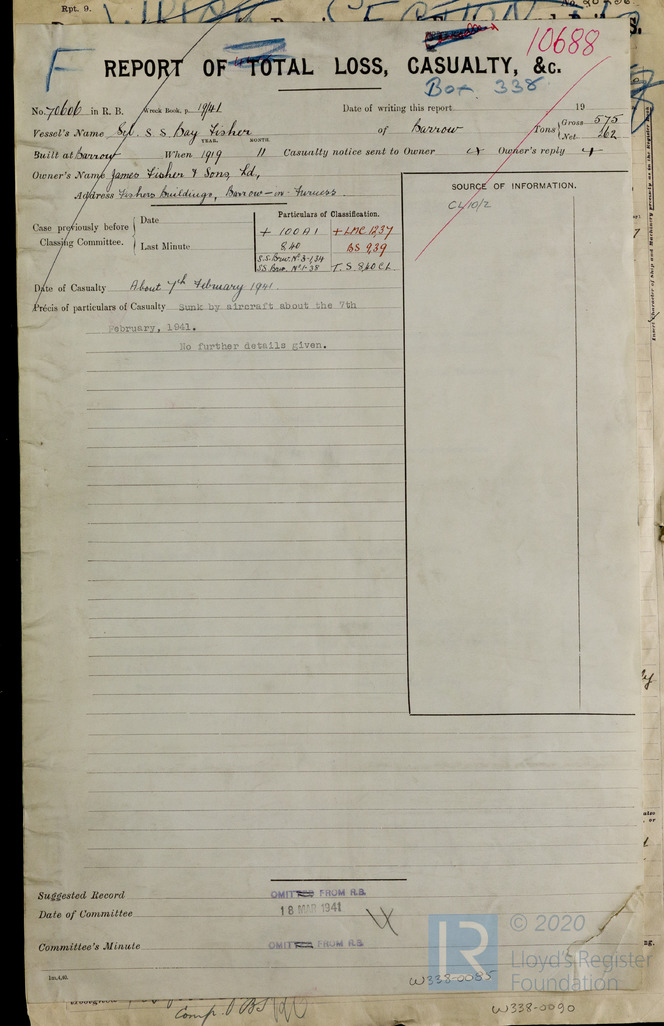 Rpt. 9.
F
10688
REPORT OF TOTAL LOSS, CASUALTY, &c.
Box 338
No. 70606 in R. B. Wreck Book, p. 19/41 Date of writing this report 19
Vessel's Name S S Bay Fisher of Barrow Tons { Gross 575
Net 262
YEAR. MONTH.
Built at Barrow When 1919 11 Casualty notice sent to Owner Owner's reply
Owner's Name James Fisher & Sons Ld,
Address Fishers Buildings, Barrow-in-Furness.
SOURCE OF INFORMATION.
CL 10/2
Case previously before Classing Committee. { Date
Last Minute
Particulars of Classification.
+ 100 A1 + LMC 12,37
8,40 BS 9,39
S.S. Brw. No 3-1,34
SS Brw. No 1-38 T. S 8,40 CL
Date of Casualty About 7th February 1941
Précis of particulars of Casualty Sunk by aircraft about the 7th
February, 1941.
No further details given.
Suggested Record OMITTED FROM R.B.
Date of Committee 18 MAR 1941
Committee's Minute OMITTED FROM R.B.
LR
© 2020
Lloyd's Register
Foundation
W338-0085
W338-0090